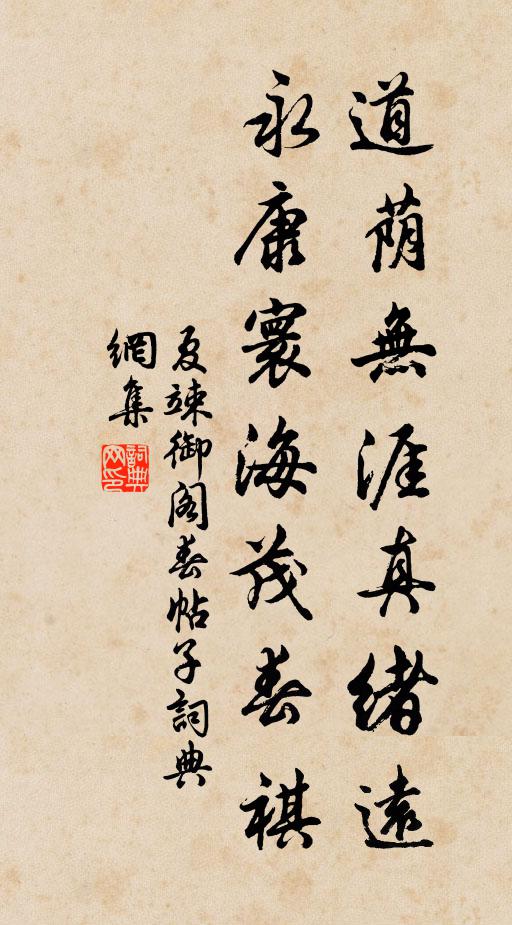 道荫無涯真緒遠
永康寰海茂春祺
夏竦御阁春帖子詞典
網集
詞典网印